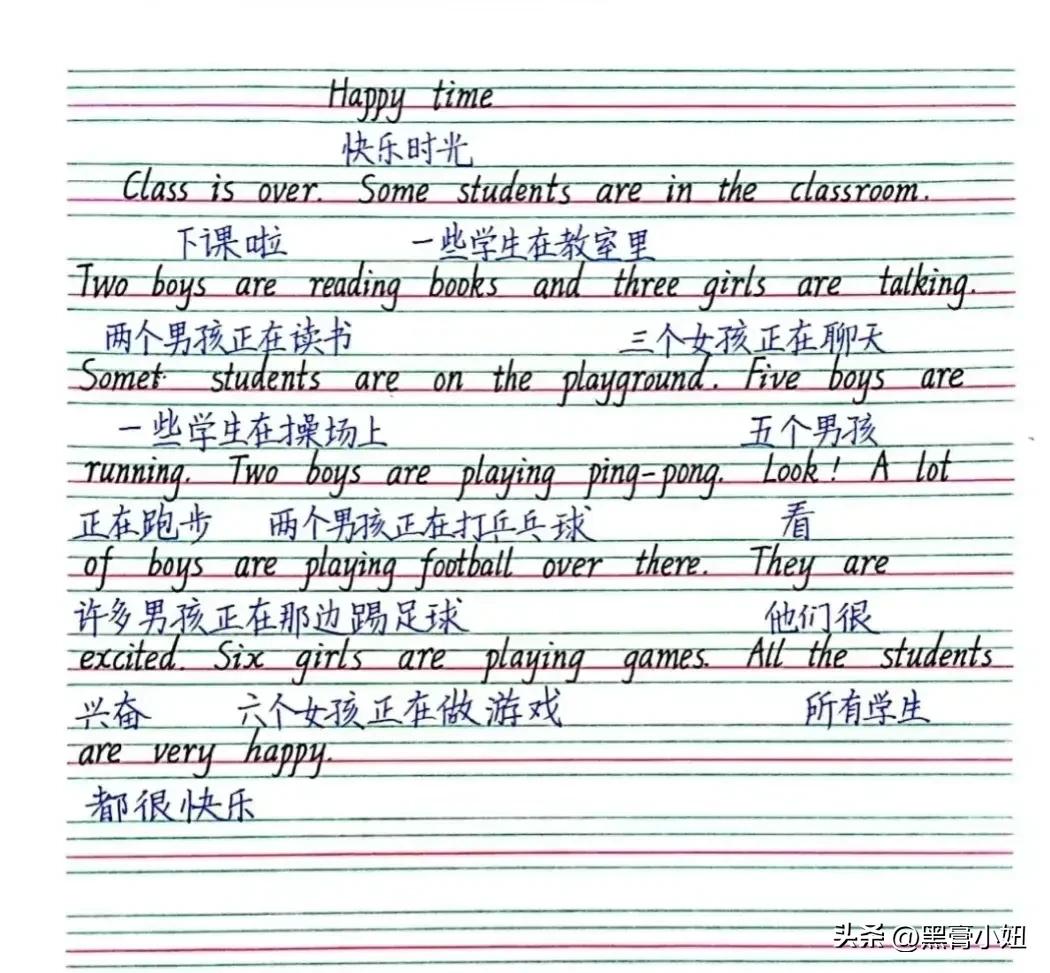 Happy time
快乐时光
Class is over. Some students are in the classroom.
下课啦 一些学生在教室里
Two boys are reading books and three girls are talking.
两个男孩正在读书 三个女孩正在聊天
Somet students are on the playground. Five boys are
一些学生在操场上 五个男孩
running. Two boys are playing ping-pong. Look! A lot
正在跑步 两个男孩正在打乒乓球 看
of boys are playing football over there. They are
许多男孩正在那边踢足球 他们很
excited. Six girls are playing games. All the students
兴奋 六个女孩正在做游戏 所有学生
are very happy.
都很快乐
头条 @黑膏小妞